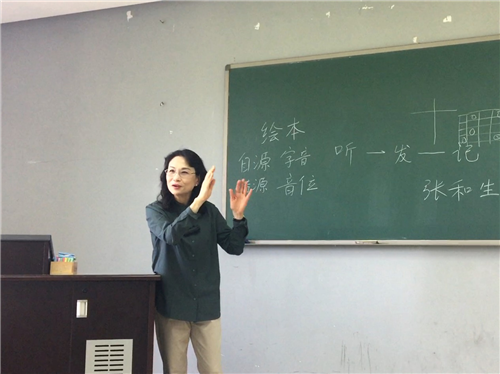 绘本
自源 字音 听一发一记
源 音位 张和生